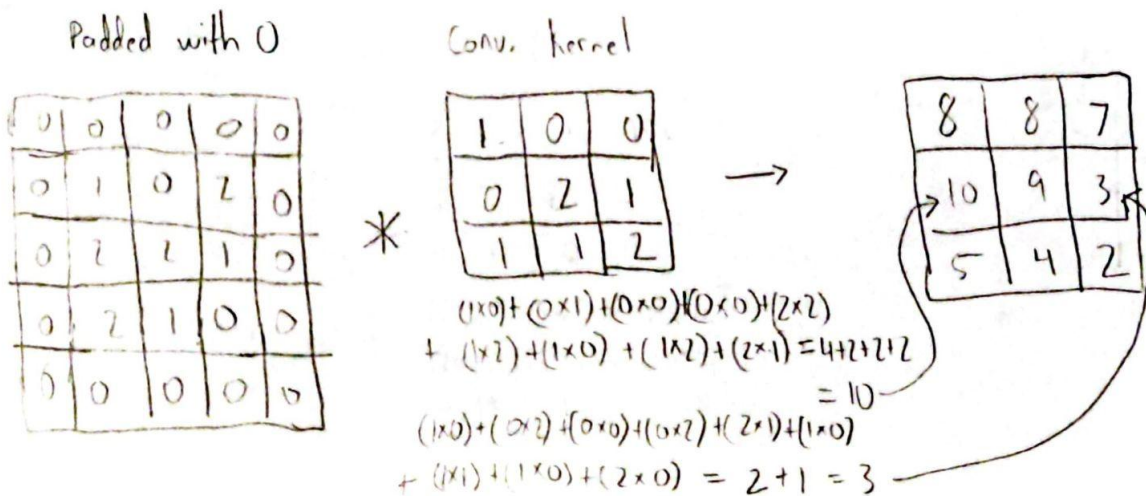 Padded with 0
Conv. kernel
0 0 0 0 0
0 1 0 2 0
0 2 2 1 0
0 2 1 0 0
0 0 0 0 0
*
1 0 0
0 2 1
1 1 2
→
8 8 7
10 9 3
5 4 2
(1×0)+(0×1)+(0×0)+(0×0)+(2×2)
+ (1×2)+(1×0)+(1×2)+(2×1)=4+2+2+2
= 10
(1×0)+(0×2)+(0×0)+(0×2)+(2×1)+(1×0)
+ (1×1)+(1×0)+(2×0) = 2+1 = 3